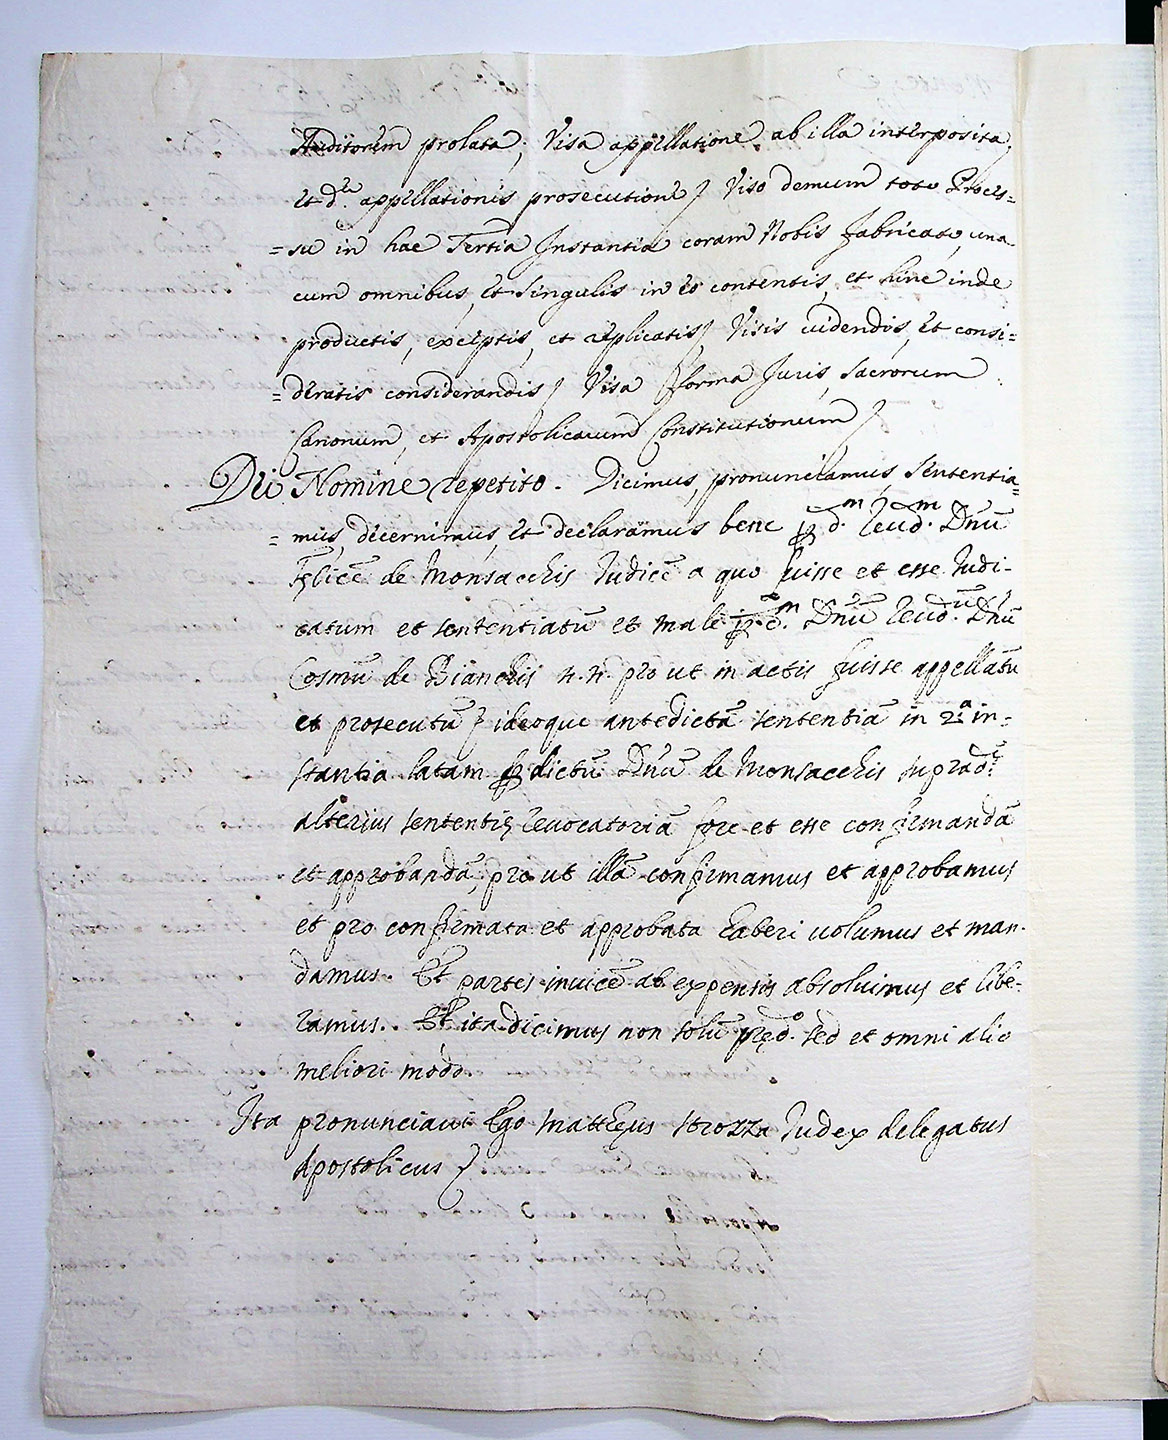 Auditorem prolata; Visa appellatione ab illa interposita,
et d.ae appellationis prosecutione; Viso demum toto Proces=
=su in hac Tertia Instantia coram Nobis fabricato, una
cum omnibus, et singulis in eo contentis, et hinc inde
productis, exceptis, et replicatis; Visis videndis, et consi=
=deratis considerandis; Visa forma Juris, Sacrorum
Canonum, et Apostolicarum Constitutionum;
Dei Nomine repetito. Dicimus, pronunciamus, sententia=
=mus, decernimus, et declaramus bene ꝑ d.m Reud.m Dnũ
Felicẽ de Monsacchis Judicẽ a quo fuisse et esse Judi-
catum et sententiatũ et male ꝑ d.m Dnũ Reud.ũ Dnũ
Cosmũ de Bianchis N. N. pro ut in actis fuisse appellatũ
et prosecutũ; ideoque antedictã sententiã in 2.a in=
stantia latam ꝑ dictũ Dnũ de Monsacchis suprad.ẽ
alterius sententię reuocatoriã fore et esse confirmandã
et approbandã, pro ut illã confirmamus et approbamus
et pro confirmata et approbata haberi uolumus et man-
damus. Et partes inuicẽ ab expensis absoluimus et libe-
ramus. Et ita dicimus non solũ pręd.o sed et omni alio
meliori modo.
Ita pronunciaui Ego Mattheus Strozza Judex delegatus
Apostolicus